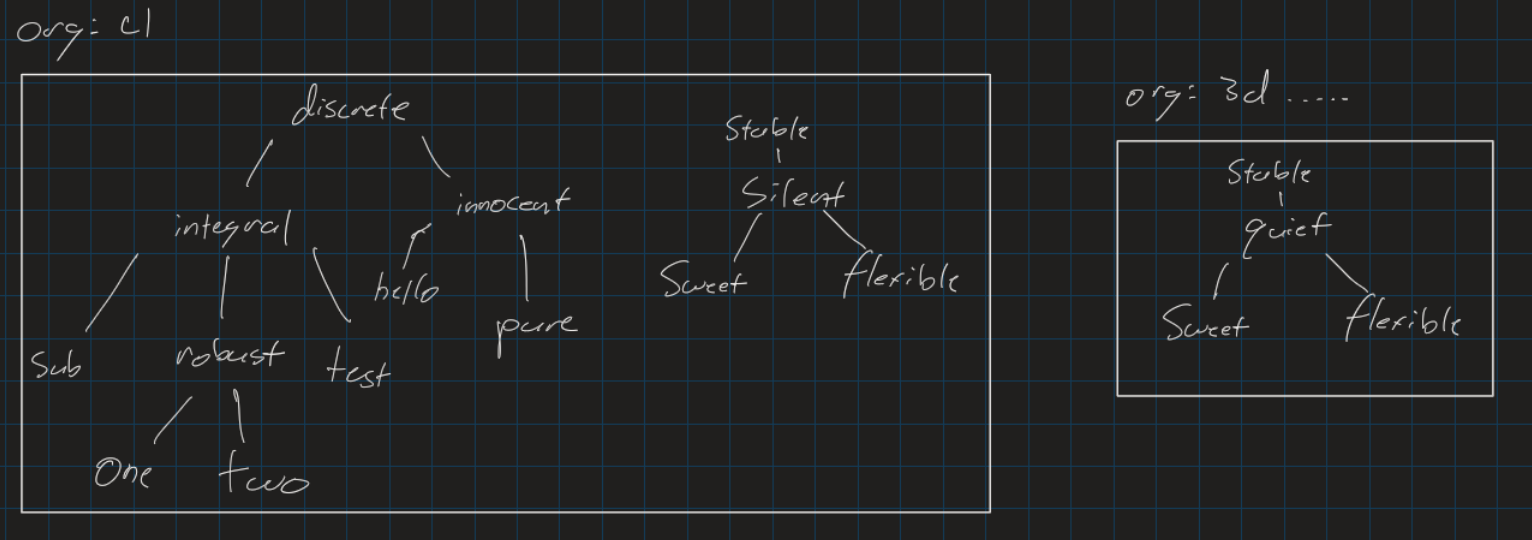 org: c1
discrete
integral
innocent
Sub
robust
test
hello
pure
One
two
Stable
Silent
Sweet
flexible
org: 3d .....
Stable
quiet
Sweet
flexible